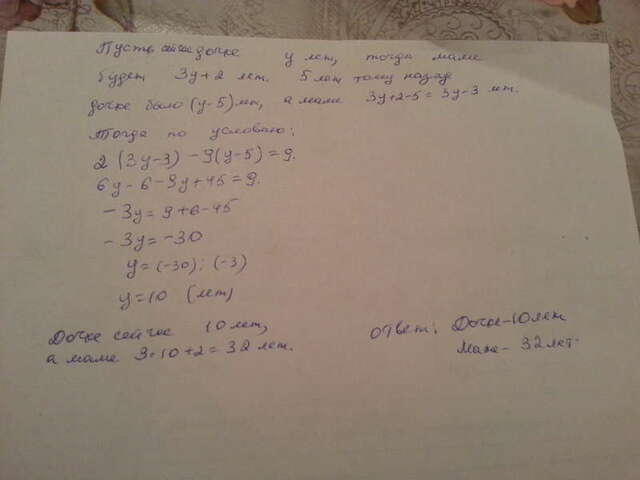 Пусть сейчас дочке у лет, тогда маме
будет 3у+2 лет. 5 лет тому назад
дочке было (у-5) лет, а маме 3у+2-5=3у-3 лет.
Тогда по условию:
2(3у-3)-9(у-5)=9.
6у-6-9у+45=9.
-3у=9+6-45
-3у=-30
у=(-30):(-3)
у=10 (лет)
Дочке сейчас 10 лет,
а маме 3*10+2=32 лет.
ответ: Дочке-10 лет
Маме- 32 лет.